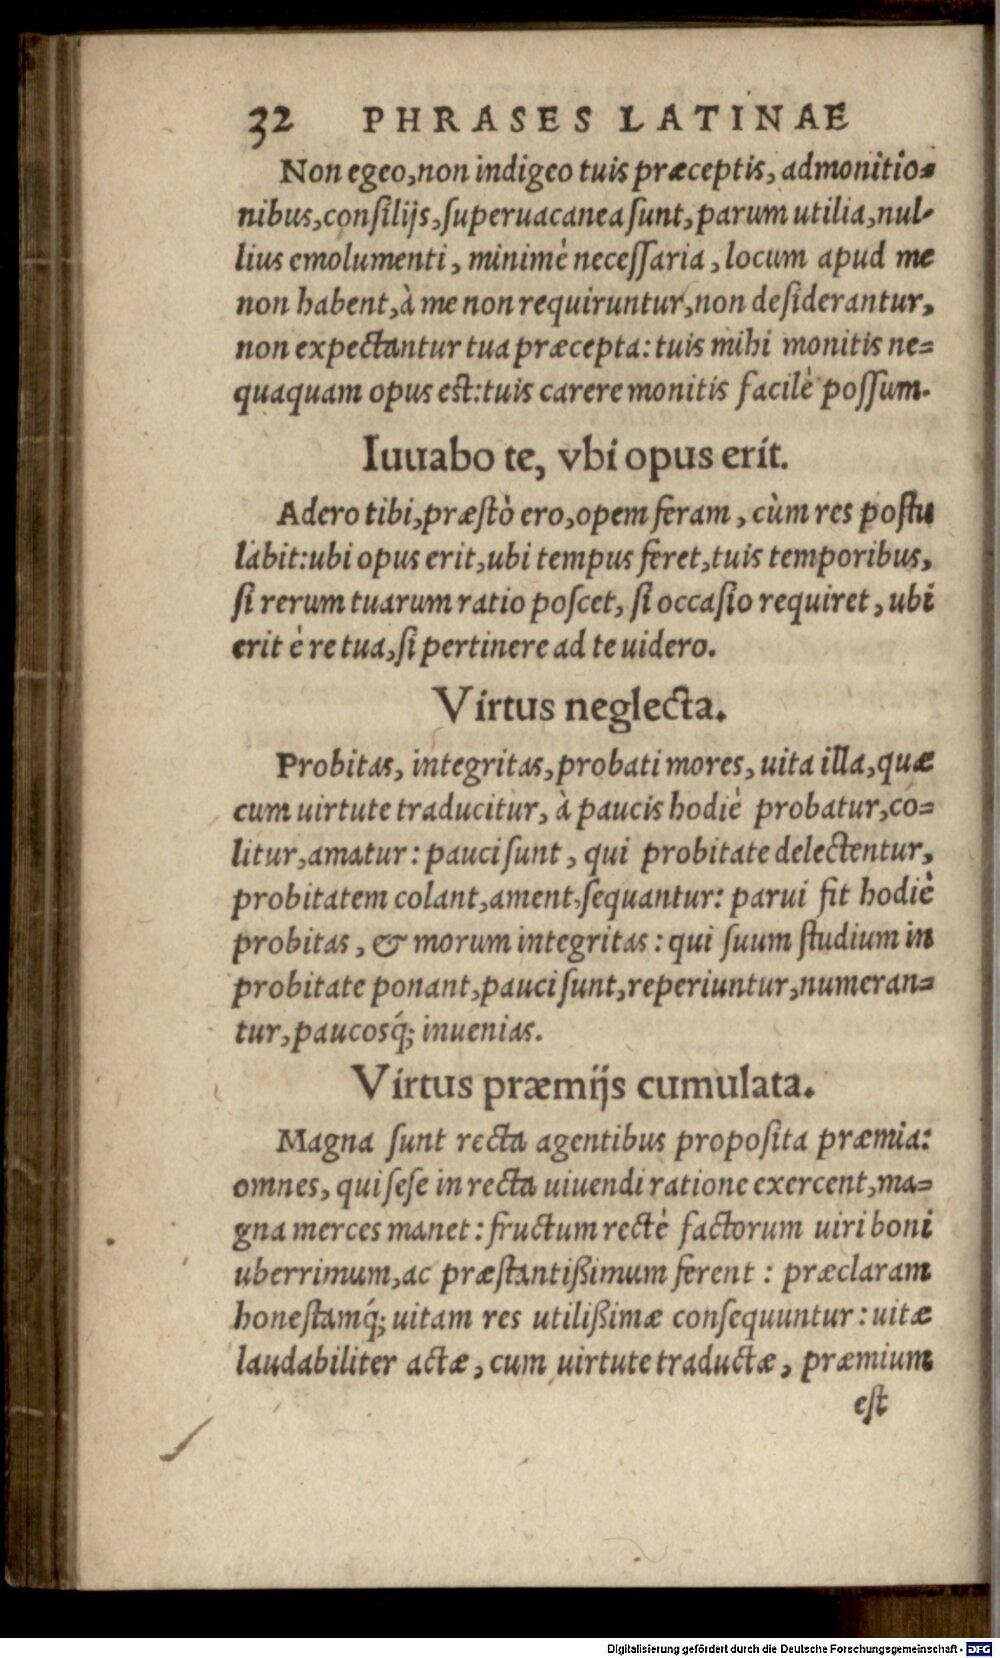 32 PHRASES LATINAE
Non egeo, non indigeo tuis præceptis, admonitio=
nibus, conſilijs, ſuperuacanea ſunt, parum utilia, nul-
lius emolumenti, minimè neceſſaria, locum apud me
non habent, à me non requiruntur, non deſiderantur,
non expectantur tua præcepta: tuis mihi monitis ne=
quaquam opus eſt: tuis carere monitis facilè poſſum.
Iuuabo te, vbi opus erit.
Adero tibi, præſtò ero, opem feram, cùm res poſtu
labit: ubi opus erit, ubi tempus feret, tuis temporibus,
ſi rerum tuarum ratio poſcet, ſi occaſio requiret, ubi
erit è re tua, ſi pertinere ad te uidero.
Virtus neglecta.
Probitas, integritas, probati mores, uita illa, quæ
cum uirtute traducitur, à paucis hodiè probatur, co=
litur, amatur: pauci ſunt, qui probitate delectentur,
probitatem colant, ament, ſequantur: parui fit hodiè
probitas, & morum integritas: qui ſuum ſtudium in
probitate ponant, pauci ſunt, reperiuntur, numeran=
tur, paucosq́; inuenias.
Virtus præmijs cumulata.
Magna ſunt recta agentibus propoſita præmia:
omnes, qui ſeſe in recta uiuendi ratione exercent, ma=
gna merces manet: fructum rectè factorum uiri boni
uberrimum, ac præſtantißimum ferent: præclaram
honeſtamq́; uitam res utilißimæ conſequuntur: uitæ
laudabiliter actæ, cum uirtute traductæ, præmium
eſt
Digitalisierung gefördert durch die Deutsche Forschungsgemeinschaft - DFG